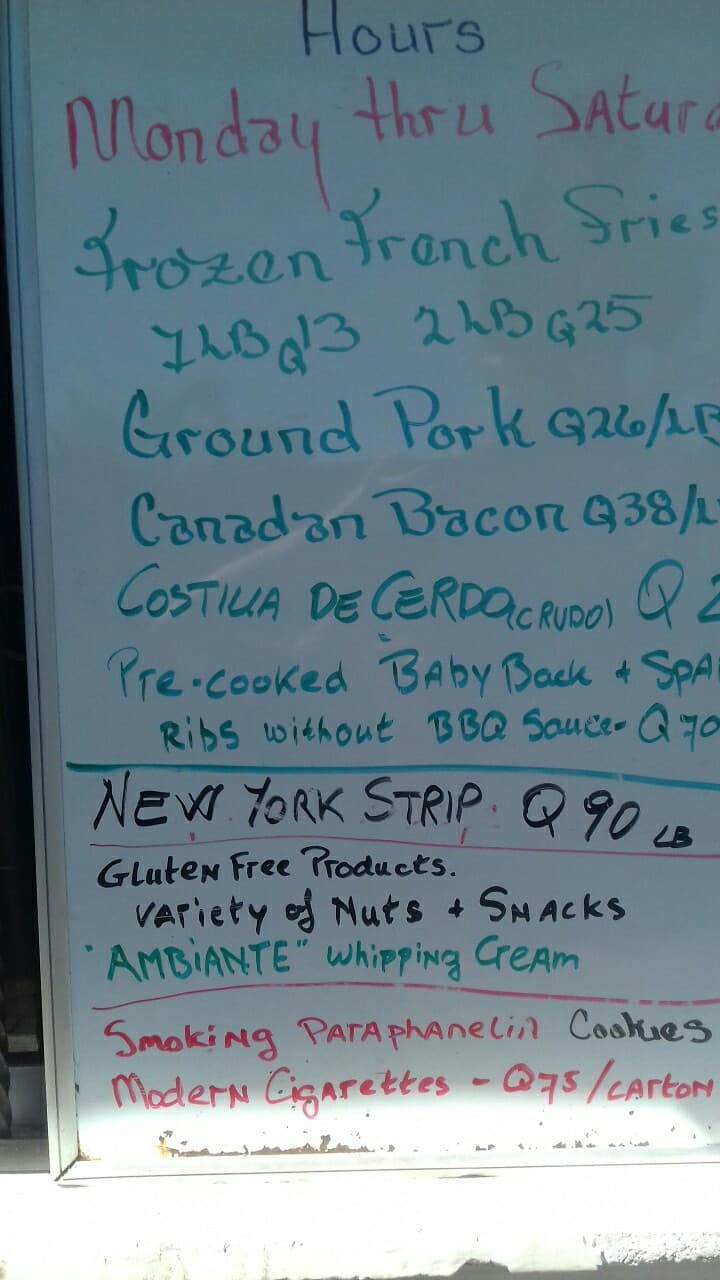 Hours
Monday thru Satur
Frozen French Fries
1LB Q13 2LB Q25
Ground Pork Q26/LB
Canadan Bacon Q38/L
COSTILLA DE CERDO (CRUDO) Q 2
Pre-cooked Baby Back + SPA
Ribs without BBQ Sauce- Q70
NEW YORK STRIP. Q 90 LB
Gluten Free Products.
Variety of Nuts + SNACKS
"AMBIANTE" Whipping Cream
Smoking Paraphanelin Cookies
Modern Cigarettes - Q75/carton